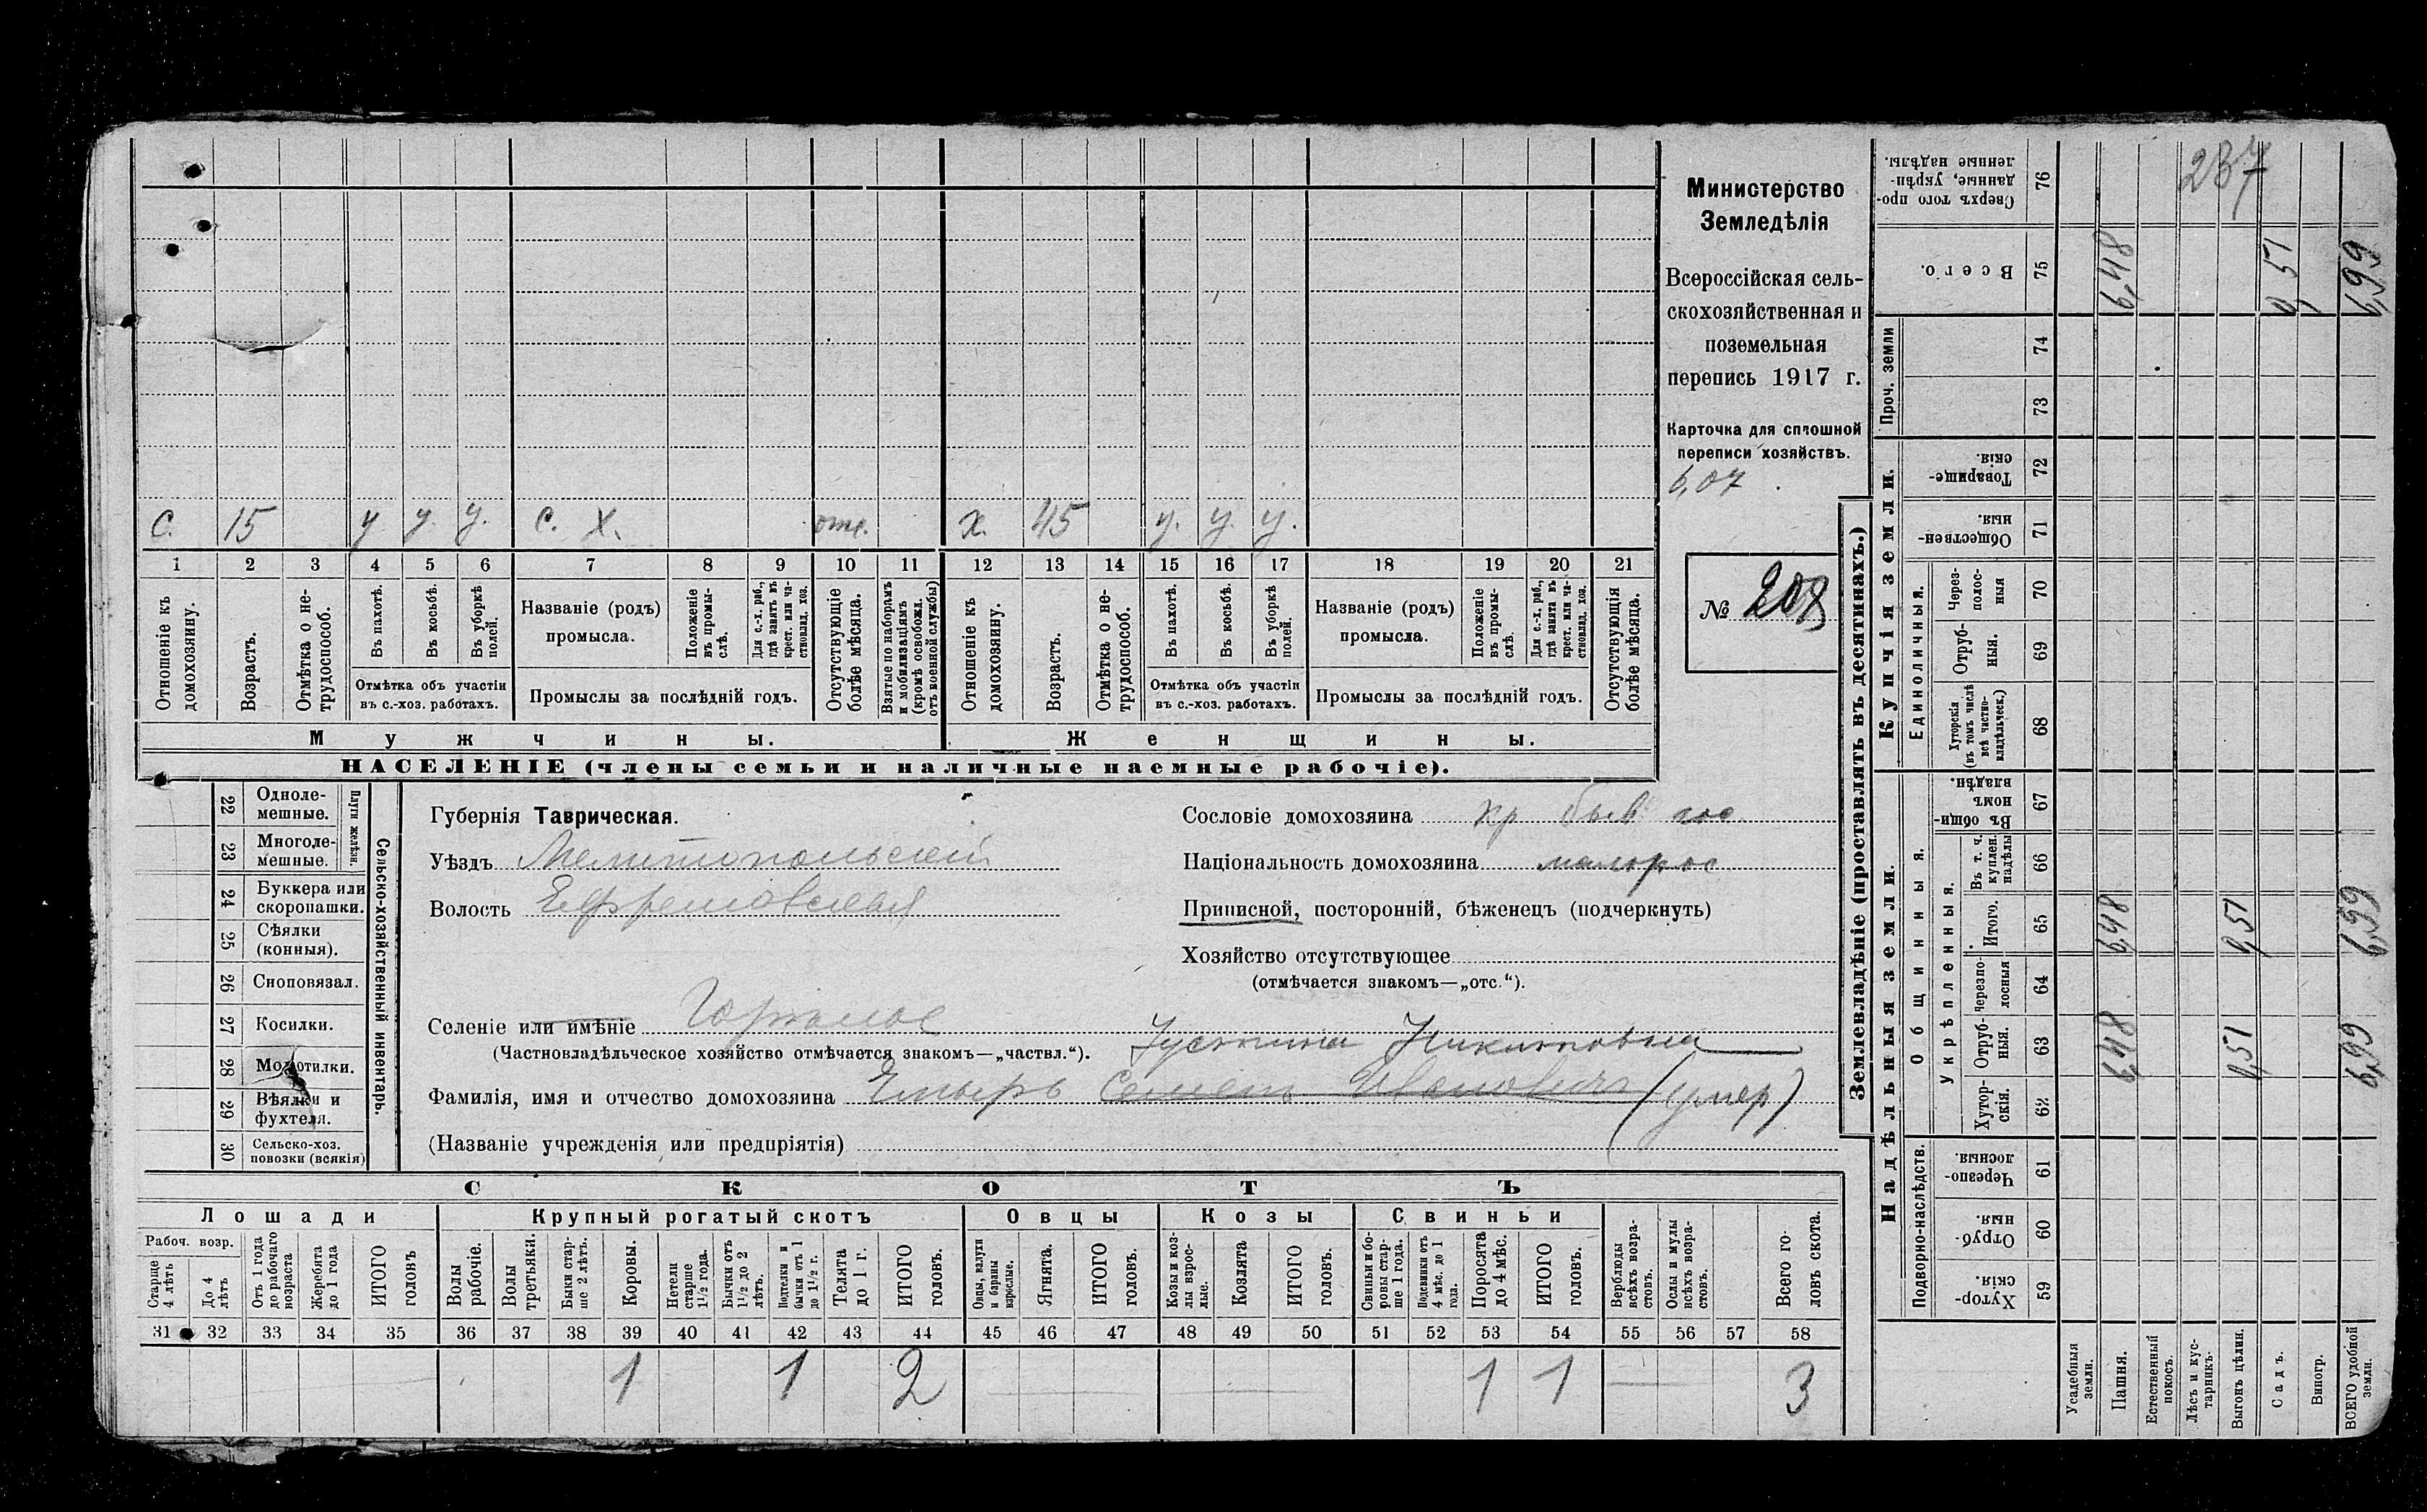 Министерство
Земледѣлія
Всероссійская сель-
скохозяйственная и
поземельная
перепись 1917 г.
Карточка для сплошной
переписи хозяйствъ.
6,07
№ 208
с. 15 у у. у. с. х. отс. х. 45 у. у. у.
1 2 3 4 5 6 7 8 9 10 11 12 13 14 15 16 17 18 19 20 21
Отношеніе къ домохозяину.
Возрастъ.
Отмѣтка о не-трудоспособ.
Въ пахотѣ.
Въ косьбѣ.
Въ уборкѣ полей.
Отмѣтка объ участіи
въ с.-хоз. работахъ.
Названіе (родъ)
промысла.
Положеніе въ промы-слѣ.
Для с.-х. раб., гдѣ занятъ въ крест. или ча-стновлад. хоз.
Промыслы за послѣдній годъ.
Отсутствующіе болѣе мѣсяца.
Взятые по наборамъ и мобилизаціямъ (кромѣ освобожд. отъ военной службы)
Отношеніе къ домохозяину.
Возрастъ.
Отмѣтка о не-трудоспособ.
Въ пахотѣ.
Въ косьбѣ.
Въ уборкѣ полей.
Отмѣтка объ участіи
въ с.-хоз. работахъ.
Названіе (родъ)
промысла.
Положеніе въ промы-слѣ.
Для с.-х. раб., гдѣ занята въ крест. или ча-стновлад. хоз.
Промыслы за послѣдній годъ.
Отсутствующія болѣе мѣсяца.
Мужчины. Женщины.
НАСЕЛЕНІЕ (члены семьи и наличные наемные рабочіе).
22 Одноле-мешные.
23 Многоле-мешные.
Плуги желѣзн.
24 Буккера или скоропашки.
25 Сѣялки (конныя).
26 Сноповязал.
27 Косилки.
28 Молотилки.
29 Вѣялки и фухтеля.
30 Сельско-хоз. повозки (всякія)
Сельско-хозяйственный инвентарь.
Губернія Таврическая.
Уѣздъ Мелитопольскій
Волость Ефремовская
Селеніе или имѣніе
(Частновладѣльческое хозяйство отмѣчается знакомъ—„частвл.“).
Устинья Никитовна
Фамилія, имя и отчество домохозяина Емыръ Семенъ Ивановичъ (умер)
(Названіе учрежденія или предпріятія)
Сословіе домохозяина кр быв гос
Національность домохозяина малорос
Приписной, посторонній, бѣженецъ (подчеркнуть)
Хозяйство отсутствующее
(отмѣчается знакомъ—„отс.“).
СКОТЪ
Лошади
Крупный рогатый скотъ
Овцы
Козы
Свиньи
Рабоч. возр.
Старше 4 лѣтъ
До 4 лѣтъ
Отъ 1 года до рабочаго возраста
Жеребята до 1 года
ИТОГО головъ
Волы рабочіе.
Волы третьяки.
Быки стар-ше 2 лѣтъ.
Коровы.
Нетели старше 1½ года.
Бычки отъ 1½ до 2 лѣтъ.
Подтелки и бычки отъ 1 до 1½ г.
Телята до 1 г.
ИТОГО головъ.
Овцы, валухи и бараны взрослые.
Ягнята.
ИТОГО головъ.
Козы и коз-лы взрос-лые.
Козлята
ИТОГО головъ.
Свиньи и бо-ровы стар-ше 1 года.
Подсвинки отъ 4 мѣс. до 1 года.
Поросята до 4 мѣс.
ИТОГО головъ.
Верблюды всѣхъ возра-стовъ.
Ослы и мулы всѣхъ возра-стовъ.
Всего го-ловъ скота.
31 32 33 34 35 36 37 38 39 40 41 42 43 44 45 46 47 48 49 50 51 52 53 54 55 56 57 58
1 1 2 1 1 3
Землевладѣніе (проставлять въ десятинахъ.)
Надѣльныя земли.
Купчія земли.
Проч. земли
Подворно-наслѣдств.
Общинныя.
Укрѣпленныя.
Единоличныя.
Сверхъ того про-данные, укрѣп-ленные надѣлы. 76
237
Всего. 75 6,48 0,51 6,99
74
73
Товарище-скія. 72
Обществен-ныя. 71
Через-полос-ныя 70
Отруб-ныя. 69
Хуторскія (въ томъ числѣ всѣ частно-владѣльческ.) 68
Въ общи-номъ владѣн. 67
Въ т. ч. куплен. надѣлы 66
Итого. 65 6,48 0,51 6,99
Черезпо-лосныя 64
Отруб-ныя. 63 6,48 0,51 6,99
Хутор-скія. 62
Черезпо-лосныя 61
Отруб-ныя. 60
Хутор-скія. 59
Усадебныя земли.
Пашня.
Естественный покосъ.
Лѣсъ и кус-тарникъ.
Выгонъ цѣлин.
Садъ.
Виногр.
ВСЕГО удобной земли.